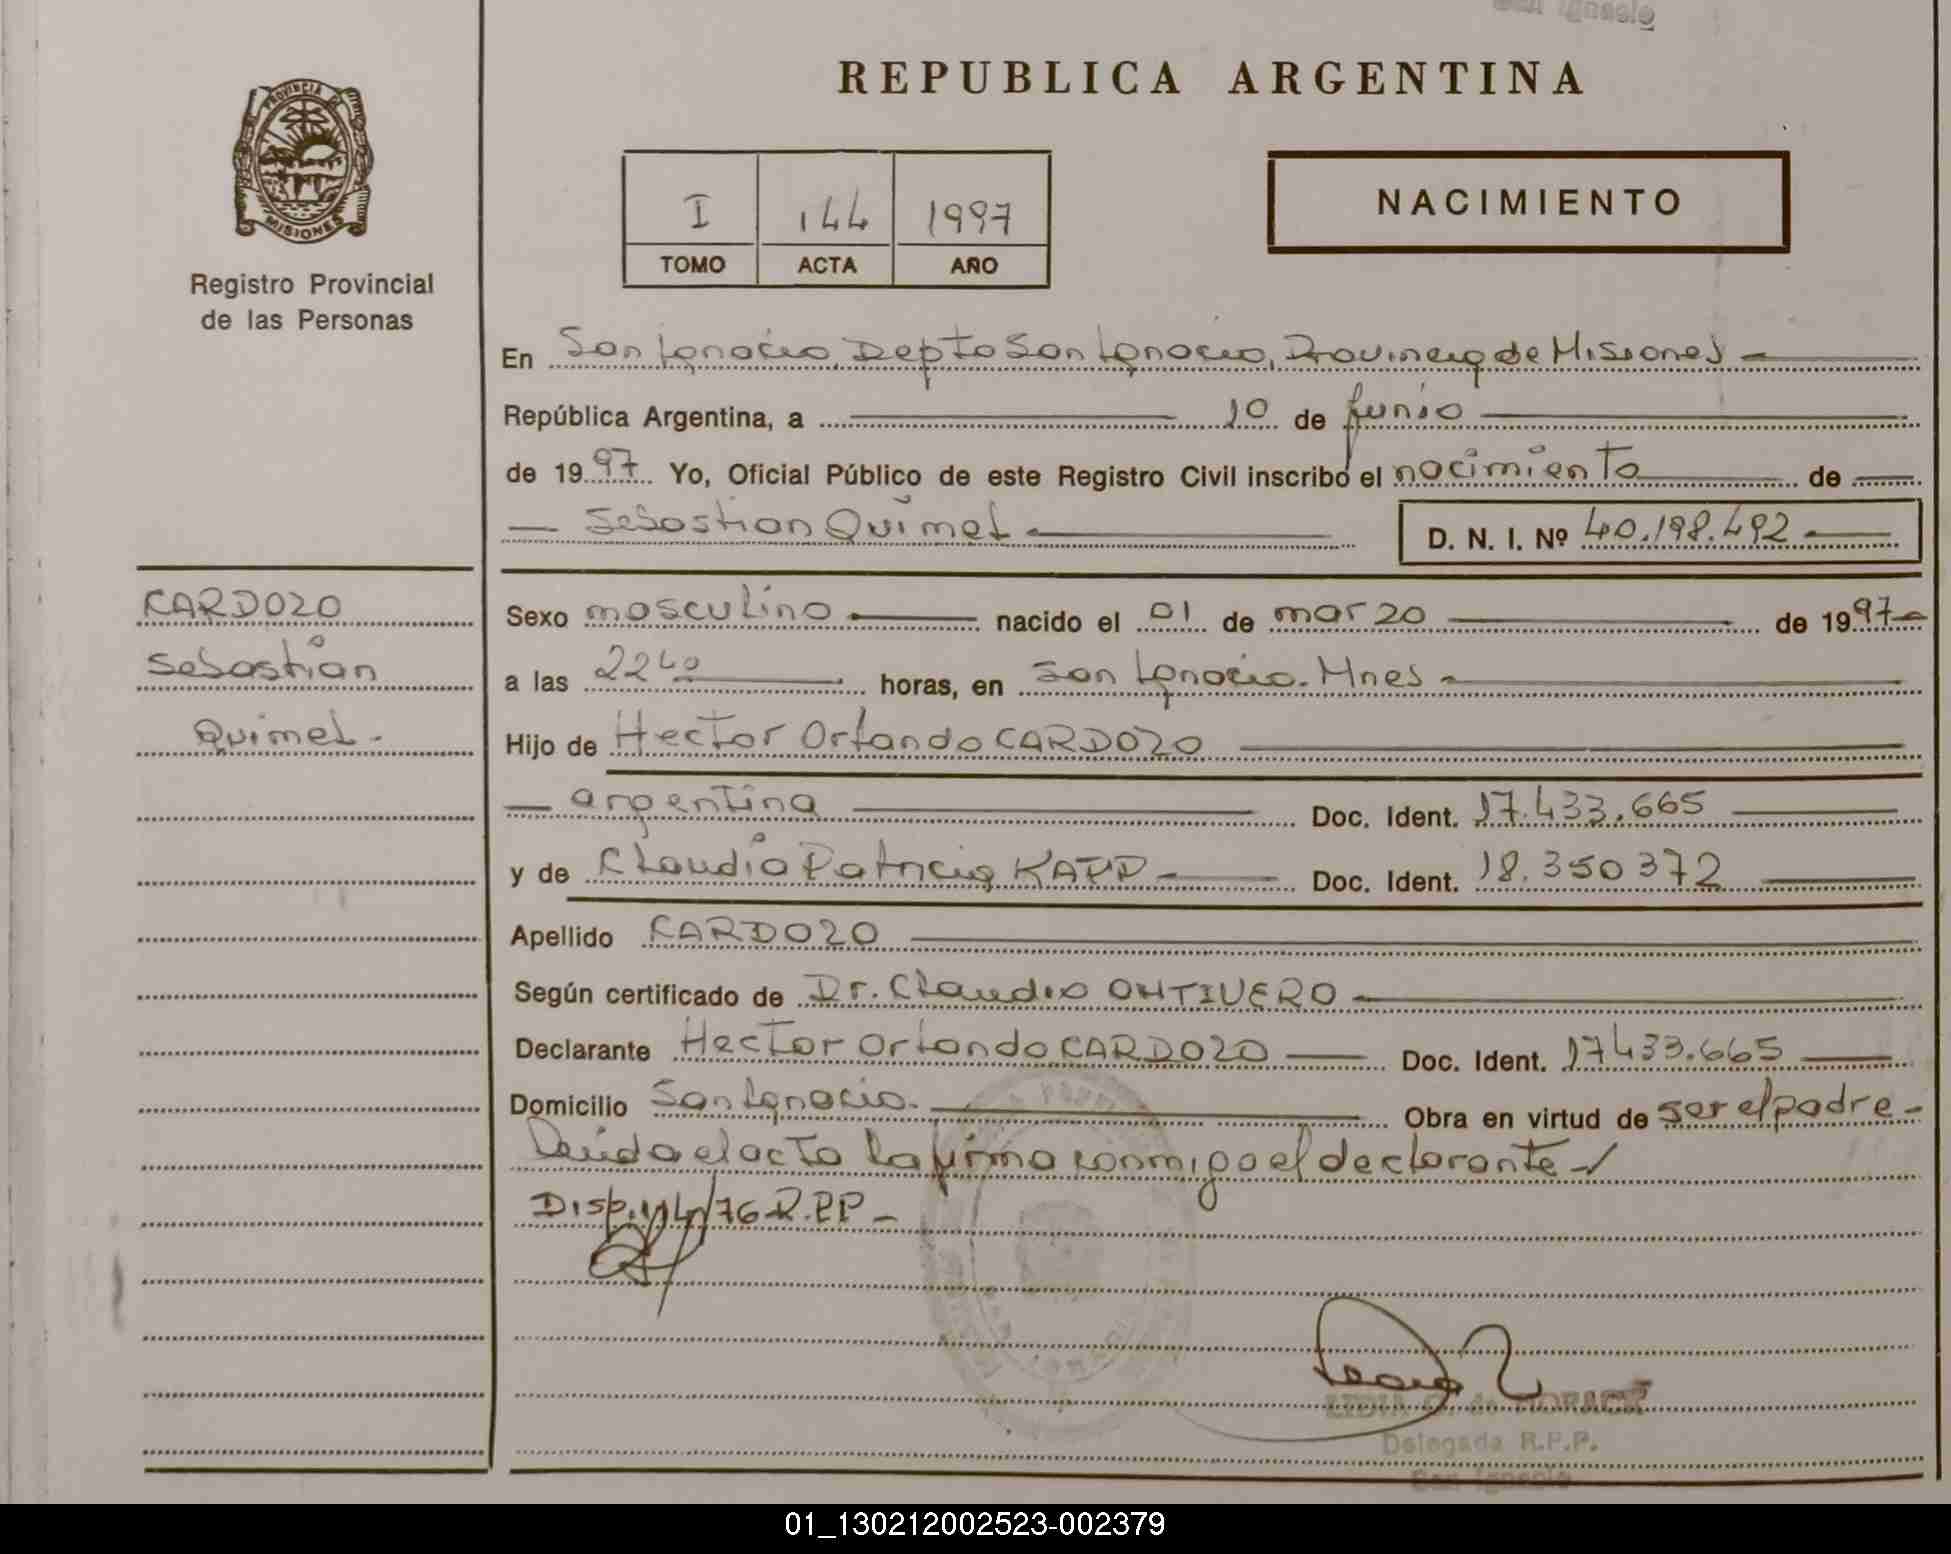 San Ignacio
PROVINCIA DE
MISIONES
Registro Provincial
de las Personas
REPUBLICA ARGENTINA
I 144 1997
TOMO ACTA AÑO
NACIMIENTO
En San Ignacio, Depto San Ignacio, Provincia de Misiones
República Argentina, a 10 de Junio
de 1997 Yo, Oficial Público de este Registro Civil inscribo el nacimiento de
Sebastián Quimel D. N. I. Nº 40.198.492
CARDOZO
Sebastián
Quimel.-
Sexo masculino nacido el 01 de marzo de 1997
a las 22 40 horas, en San Ignacio. Mnes
Hijo de Hector Orlando CARDOZO
argentina Doc. Ident. 17.433.665
y de Claudia Patricia KAPP Doc. Ident. 18.350372
Apellido CARDOZO
Según certificado de Dr. Claudio ONTIVERO
Declarante Hector Orlando CARDOZO Doc. Ident. 17433.665
Domicilio San Ignacio. Obra en virtud de ser el padre-
Leída el acta la firma conmigo el declarante
Disp. 114/76 R.PP-
LIDIA G. de HORACK
Delegada R.P.P.
San Ignacio
01_130212002523-002379